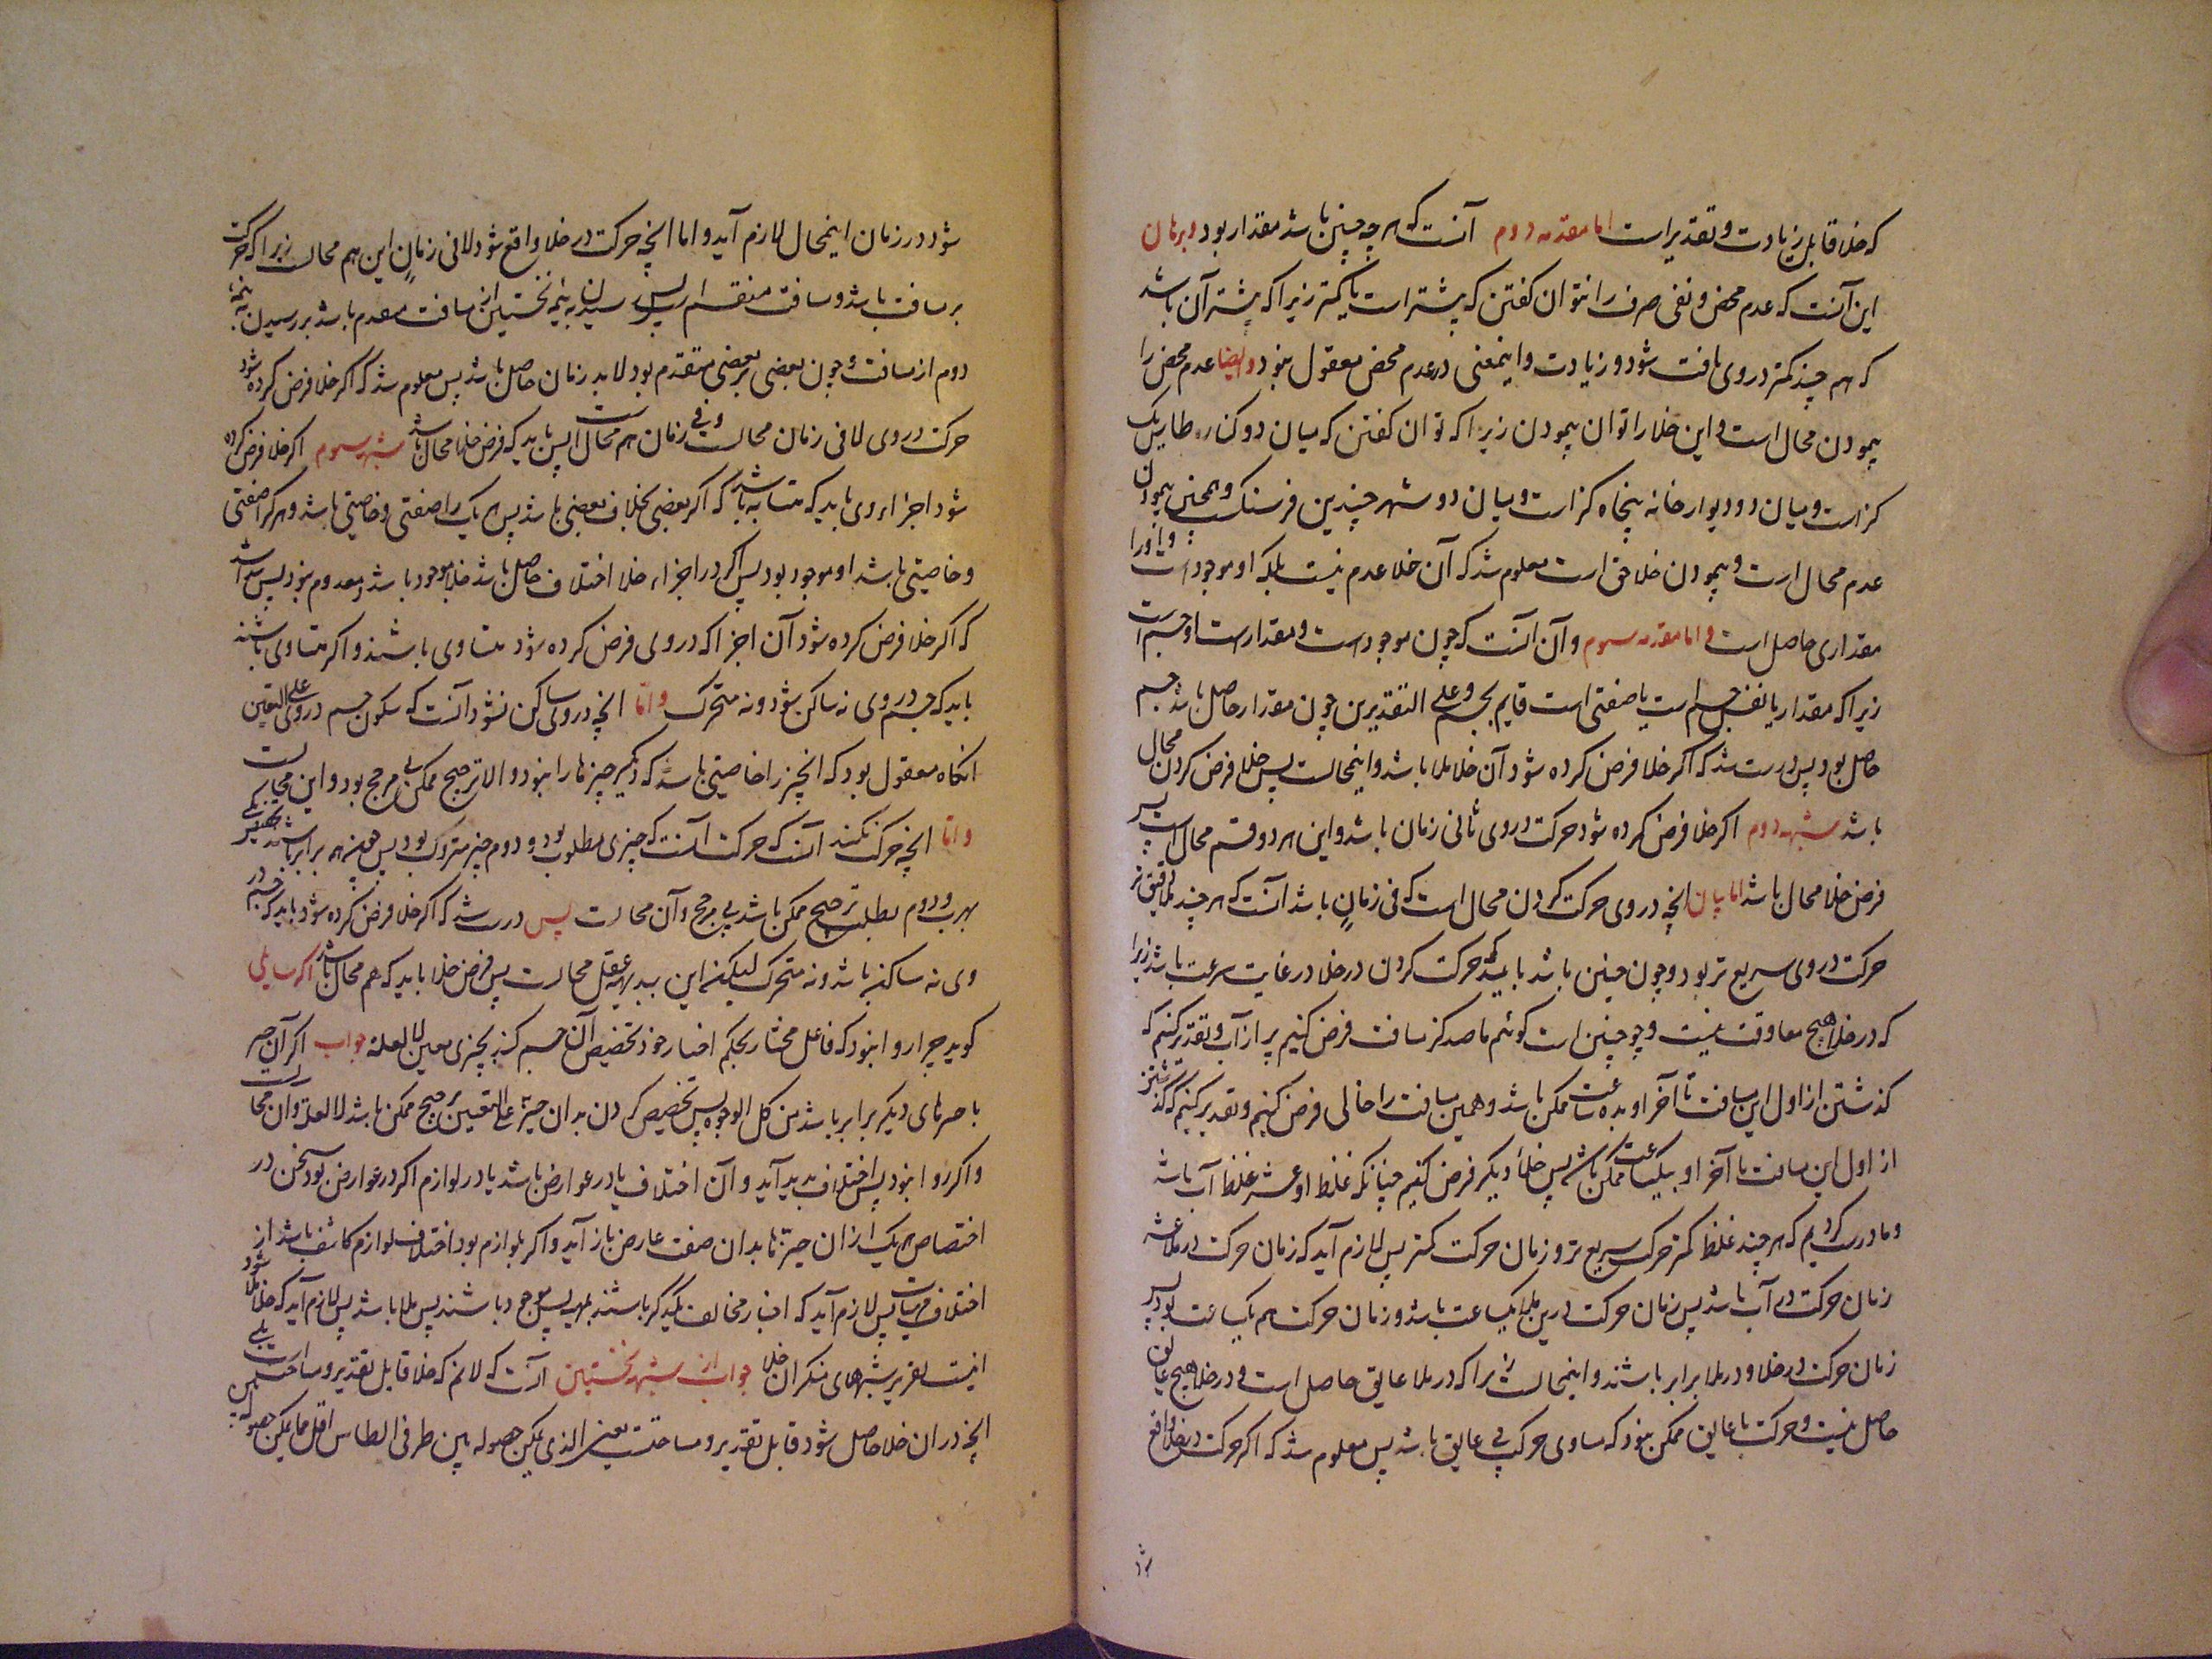 که خلا قابل زیادت و تقدیر است اما مقدمه دوم آنست که هر چه چنین باشد مقدار بود و برهان
این آنست که عدم محض و نفی صرف را نتوان کفتن که بیشتر است یا کمتر زیرا که بیشتر آن باشد
که هم چند کمتر در وی یافت شود و زیادت و اینمعنی در عدم محض معقول نبود و ایضا عدم محض را
پیمودن محال است و این خلا را توان پیمودن زیرا که توان کفتن که میان دو کناره طاس یک
کز است و میان دو دیوار خانه پنجاه کز است و میان دو شهر چندین فرسنک و همچنین پیمودن
عدم محال است و پیمودن خلا حق است معلوم شد که آن خلا عدم نیست بلکه او موجود است و او را
مقداری حاصل است و اما مقدمه سوم و آن آنست که چون موجودست و مقدارست او جسم است
زیرا که مقدار یا نفس جسم است یا صفتی است قایم بجسم و علی التقدیرین چون مقدار حاصل باشد جسم
حاصل بود پس درست شد که اکر خلا فرض کرده شود آن خلا ملا باشد و اینمحالست پس خلا فرض کردن محال
باشد شبهه دوم اکر خلا فرض کرده شود حرکت در وی فی زمان باشد و این هر دو قسم محال است پس
فرض خلا محال باشد اما بیان انچه در وی حرکت کردن محال است که فی زمانٍ باشد آنست که هر چند ملا رقیق تر
حرکت در وی سریع تر بود و چون چنین باشد باید که حرکت کردن در خلا در غایت سرعت باشد زیرا
که در خلا هیچ معاوقت نیست و چو چنین است کوئیم ما صد کز مسافت فرض کنیم پر از آب و تقدیر کنیم که
کذشتن از اول این مسافت تا آخر او بده ساعت ممکن باشد و همین مسافت را خالی فرض کنیم و تقدیر کنیم که کذشتن
از اول این مسافت تا آخر او بیکساعت ممکن باشد پس خلأ دیکر فرض کنیم چنانکه غلظ او عشر غلظ آب باشد
و ما درست کردیم که هر چند غلظ کمتر حرکت سریع تر و زمان حرکت کمتر پس لازم آید که زمان حرکت در ملا عشر
زمان حرکت در آب باشد پس زمان حرکت درین ملا یکساعت باشد و زمان حرکت هم یکساعت بود پس
زمان حرکت در خلا و در ملا برابر باشند و اینمحالست زیرا که در ملا عایق حاصل است و در خلا هیچ عایق
حاصل نیست و حرکت با عایق ممکن نبود که مساوی حرکت بی عایق باشد پس معلوم شد که اکر حرکت در خلا واقع
شود
شود در زمان اینمحال لازم آید و اما انچه حرکت در خلا واقع شود لا فی زمانٍ این هم محالست زیرا که حرکت
بر مسافت باشد و مسافت منقسم است پس رسیدن به نیمه نخستین از مسافت مقدم باشد بر رسیدن به نیمه
دوم از مسافت و چون بعضی بر بعضی متقدم بود لا بد زمان حاصل باشد پس معلوم شد که اکر خلا فرض کرده شود
حرکت در وی لا فی زمان محالست و فی زمان هم محال است پس باید که فرض خلا محال باشد شبهه سوم اکر خلا فرض کرده
شود اجزاء وی باید که متشابه باشد که اکر بعضی بخلاف بعضی باشد پس هر یک را صفتی و خاصیتی باشد و هر که را صفتی
و خاصیتی باشد او موجود بود پس اکر در اجزاء خلا اختلاف حاصل باشد خلا موجود باشد و معدوم نبود پس
که اکر خلا فرض کرده شود آن اجزا که در وی فرض کرده شود متساوی باشند و اکر متساوی باشند
باید که جسم در وی نه ساکن شود و نه متحرک و اما انچه در وی ساکن نشود آنست که سکون جسم در وی علی التعیین
انکاه معقول بود که انچیز را خاصیتی باشد که دیکر چیزها را نبود و الا ترجیح ممکن بی مرجح بود و این محالست
و اما انچه حرکت نکند آنست که حرکت آنست که چیزی مطلوب بود و دوم چیز متروک بود پس چون همه برابر باشد تخصیص یکی
بهرب و دوم بطلب ترجیح ممکن باشد بی مرجح و آن محالست پس درست شد که اکر خلا فرض کرده شود باید که جسم در
وی نه ساکن باشد و نه متحرک لیکن این ببدیهه عقل محالست پس فرض خلا باید که هم محال باشد اکر سایلی
کوید چرا روا نبود که فاعل مختار بحکم اختیار خود تخصیص آن جسم کند بچیزی معین لا لعلة جواب اکر آن حیز
با حیزهای دیکر برابر باشد من کل الوجوه پس تخصیص کردن بدان حیز علی التعیین ترجیح ممکن باشد لا لعلة و ان محالست
و اکر روا نبود پس اختلاف پدید آید و آن اختلاف یا در عوارض باشد یا در لوازم اکر در عوارض بود سخن در
اختصاص هر یک از ان حیزها بدان صفت عارض باز آید و اکر بلوازم بود اختلاف لوازم کاشف باشد از
اختلاف ماهیات پس لازم آید که احیاز مخالف یکدیکر باشند پس موجود باشند پس ملا باشد پس لازم آید که خلا ملا شود
اینست تقریر شبهای منکران خلا جواب از شبهه نخستین آنست که لا نم که خلا قابل تقدیر و مساحتست بلی
انچه در ان خلا حاصل شود قابل تقدیر و مساحتست یعنی الذی یمکن حصوله بین طرفی الطاس اقل مما یمکن حصوله